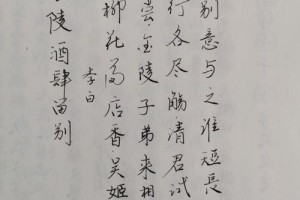 陵酒肆留别
李白
柳花满店香吴姬
尝金陵子弟来相
行各尽觞请君试
别意与之谁短長